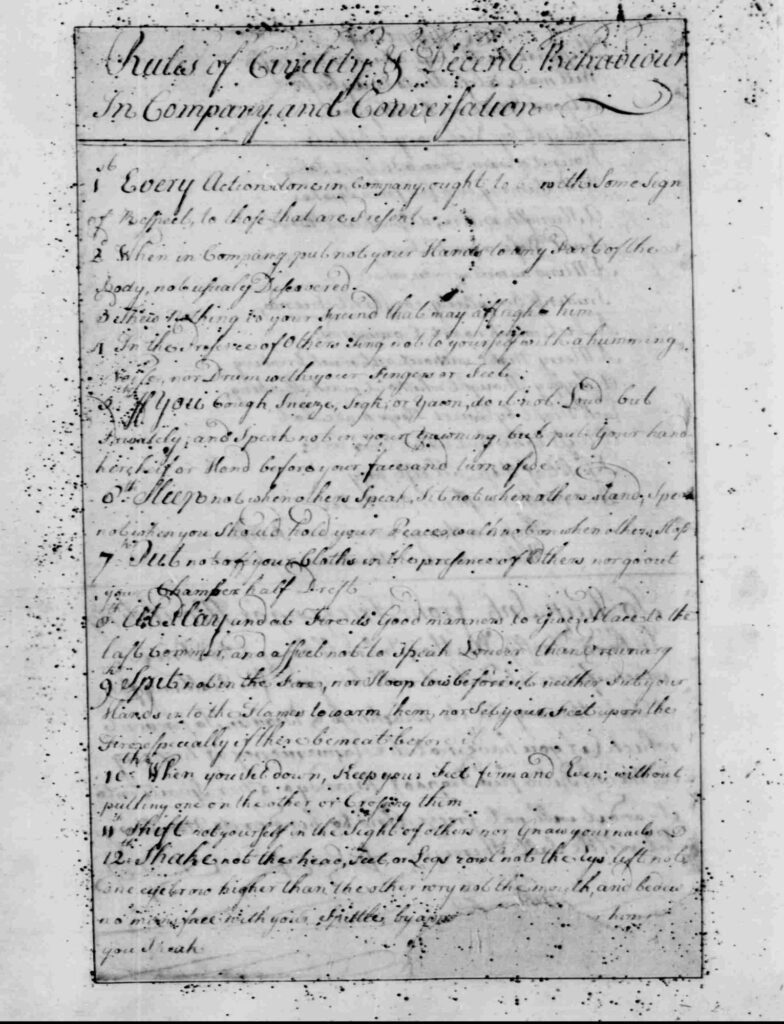 Rules of Civility & Decent Behaviour
In Company and Conversation
1st Every Action done in Company, ought to with Some Sign
of Respect, to those that are Present.
2d When in Company, put not your Hands to any Part of the
Body, not usualy Discovered.
3 Shew Nothing to your Friend that may affright him
4 In the Presence of Others Sing not to yourself with a humming
Noise, nor Drum with your Fingers or Feet.
5 If You Cough, Sneeze, Sigh, or Yawn, do it not Loud but
Privately; and Speak not in your Yawning, but put Your hand
kercheif or Hand before your face and turn aside
6th Sleep not when others Speak, Sit not when others stand, Speak
not when you Should hold your Peace, walk not on when others Stop
7th Put not off your Cloths in the presence of Others, nor go out
your Chamber half Drest
8th At Play and at Fire its Good manners to Give Place to the
last Commer, and affect not to Speak Louder than Ordinary
9th Spit not in the Fire, nor Stoop low before it neither Put your
Hands into the Flames to warm them, nor Set your Feet upon the
Fire especially if there be meat before it
10th When you Sit down, Keep your Feet firm and Even, without
putting one on the other or Crossing them
11th Shift not yourself in the Sight of others nor Gnaw your nails
12th Shake not the head, Feet, or Legs rowl not the Eys lift not
one eyebrow higher than the other wry not the mouth, and bedew
no mans face with your Spittle, by
you Speak